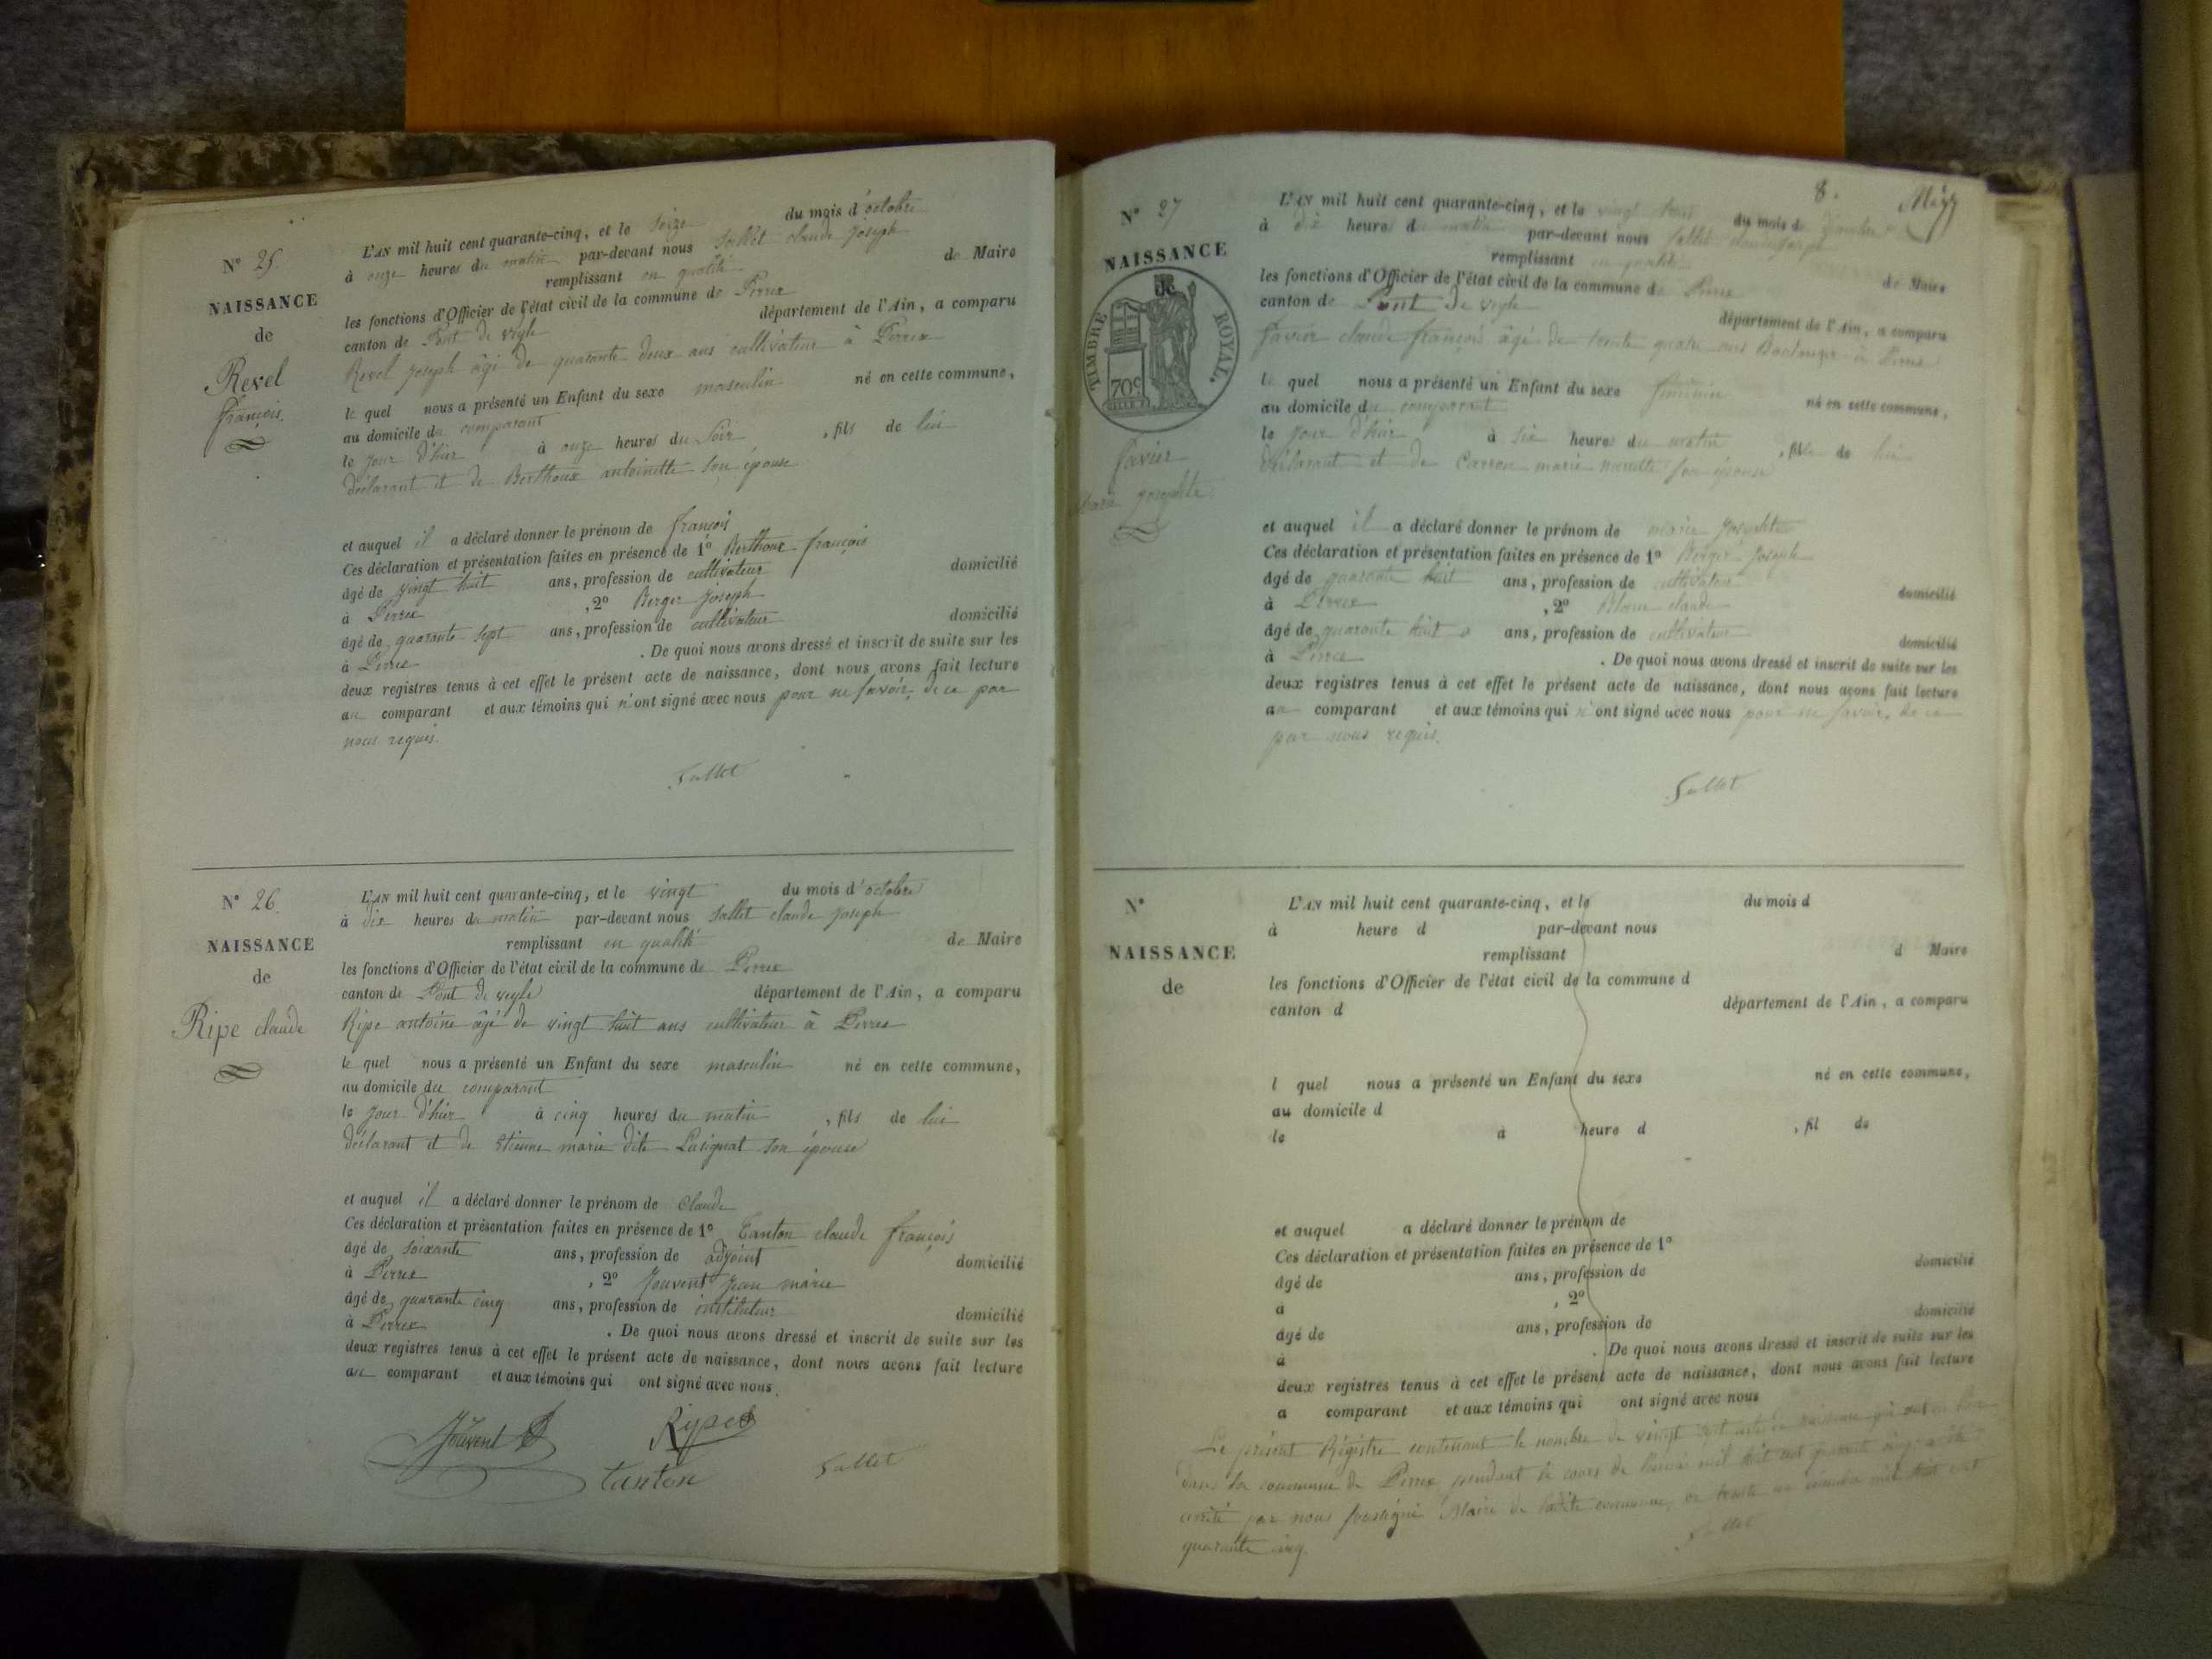 N° 25.
NAISSANCE
de
Revel
françois.
L'AN mil huit cent quarante-cinq, et le seize du mois d'octobre
à onze heures du matin par-devant nous Sallet claude Joseph
remplissant en qualité de Maire
les fonctions d'Officier de l'état civil de la commune de Perrex
canton de Pont de veyle département de l'Ain, a comparu
Revel Joseph âgé de quarante deux ans cultivateur à Perrex
le quel nous a présenté un Enfant du sexe masculin né en cette commune,
au domicile du comparant
le jour d'hier à onze heures du Soir, fils de lui
déclarant et de Berthoux antoinette son épouse
et auquel il a déclaré donner le prénom de françois
Ces déclaration et présentation faites en présence de 1° Berthoux françois
âgé de vingt huit ans, profession de cultivateur domicilié
à Perrex, 2° Berger Joseph
âgé de quarante sept ans, profession de cultivateur domicilié
à Perrex. De quoi nous avons dressé et inscrit de suite sur les
deux registres tenus à cet effet le présent acte de naissance, dont nous avons fait lecture
au comparant et aux témoins qui n'ont signé avec nous pour ne savoir, de ce par
nous requis.
Sallet
N° 26.
NAISSANCE
de
Ripe claude
L'AN mil huit cent quarante-cinq, et le vingt du mois d'octobre
à dix heures du matin par-devant nous Sallet claude Joseph
remplissant en qualité de Maire
les fonctions d'Officier de l'état civil de la commune de Perrex
canton de Pont de veyle département de l'Ain, a comparu
Ripe antoine âgé de vingt huit ans cultivateur à Perrex
le quel nous a présenté un Enfant du sexe masculin né en cette commune,
au domicile du comparant
le jour d'hier à cinq heures du matin, fils de lui
déclarant et de Etienne marie dite Lusignat son épouse
et auquel il a déclaré donner le prénom de Claude
Ces déclaration et présentation faites en présence de 1° Tanton claude françois
âgé de soixante ans, profession de adjoint domicilié
à Perrex, 2° Jouvent Jean marie
âgé de quarante cinq ans, profession de instituteur domicilié
à Perrex. De quoi nous avons dressé et inscrit de suite sur les
deux registres tenus à cet effet le présent acte de naissance, dont nous avons fait lecture
au comparant et aux témoins qui ont signé avec nous.
Jouvent Ripe
Tanton Sallet
8.
N° 27
NAISSANCE
TIMBRE ROYAL.
70c
favier
marie josephte
L'AN mil huit cent quarante-cinq, et le vingt du mois d
à dix heure d matin par-devant nous Sallet claude Joseph
remplissant en qualité de Maire
les fonctions d'Officier de l'état civil de la commune de Perrex
canton de Pont de veyle département de l'Ain, a comparu
favier claude françois âgé de trente quatre ans Boulanger à Perrex
le quel nous a présenté un Enfant du sexe féminin né en cette commune,
au domicile du comparant
le jour d'hier à six heures du matin, fille de lui
déclarant et de Carron marie son épouse
et auquel il a déclaré donner le prénom de marie Josephte
Ces déclaration et présentation faites en présence de 1° Berger Joseph
âgé de quarante huit ans, profession de cultivateur domicilié
à Perrex, 2° Blanc claude
âgé de quarante huit ans, profession de cultivateur domicilié
à Perrex. De quoi nous avons dressé et inscrit de suite sur les
deux registres tenus à cet effet le présent acte de naissance, dont nous avons fait lecture
au comparant et aux témoins qui n'ont signé avec nous pour ne savoir, de ce
par nous requis.
Sallet
N°
NAISSANCE
de
L'AN mil huit cent quarante-cinq, et le du mois d
à heure d par-devant nous
remplissant d Maire
les fonctions d'Officier de l'état civil de la commune d
canton d département de l'Ain, a comparu
l quel nous a présenté un Enfant du sexe né en cette commune,
au domicile d
le à heure d, fil de
et auquel a déclaré donner le prénom de
Ces déclaration et présentation faites en présence de 1°
âgé de ans, profession de domicilié
à, 2°
âgé de ans, profession de domicilié
à. De quoi nous avons dressé et inscrit de suite sur les
deux registres tenus à cet effet le présent acte de naissance, dont nous avons fait lecture
a comparant et aux témoins qui ont signé avec nous
Le présent Régistre contenant le nombre de vingt sept actes de naissance qui ont eu lieu
dans la commune de Perrex pendant le cours de l'année mil huit cent quarante cinq a été
arrêté par nous soussigné Maire de ladite commune, le trente un décembre mil huit cent
quarante cinq.
Sallet